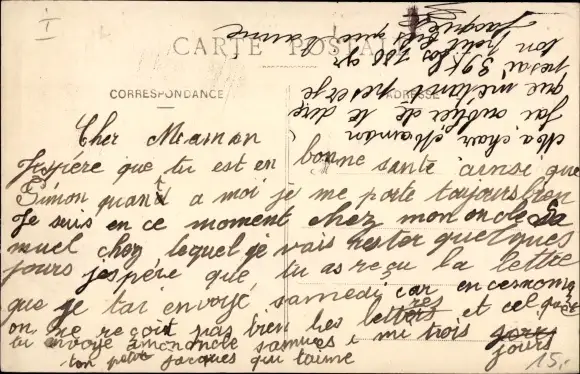 I
CARTE POSTALE
CORRESPONDANCE
ADRESSE
Cher Maman
J'espère que tu est en bonne santé ainsi que
Simon quant a moi je me porte toujours bien
Je suis en ce moment chez mon oncle Sa
muel chez lequel je vais rester quelques
jours j'espère que tu as reçu la lettre
que je tai envoyé samedi car en ce
on ne reçoit pas bien les lettres et cel
tu envoye a mon oncle samuel mi trois jours
ton petit Jacques qui t'aime
Ma cher Maman
J'ai oublier de te dire
que m'étant peser je
pesai 39 K 100 gr
ton petit fils qui t'aime
Jacques
15.-